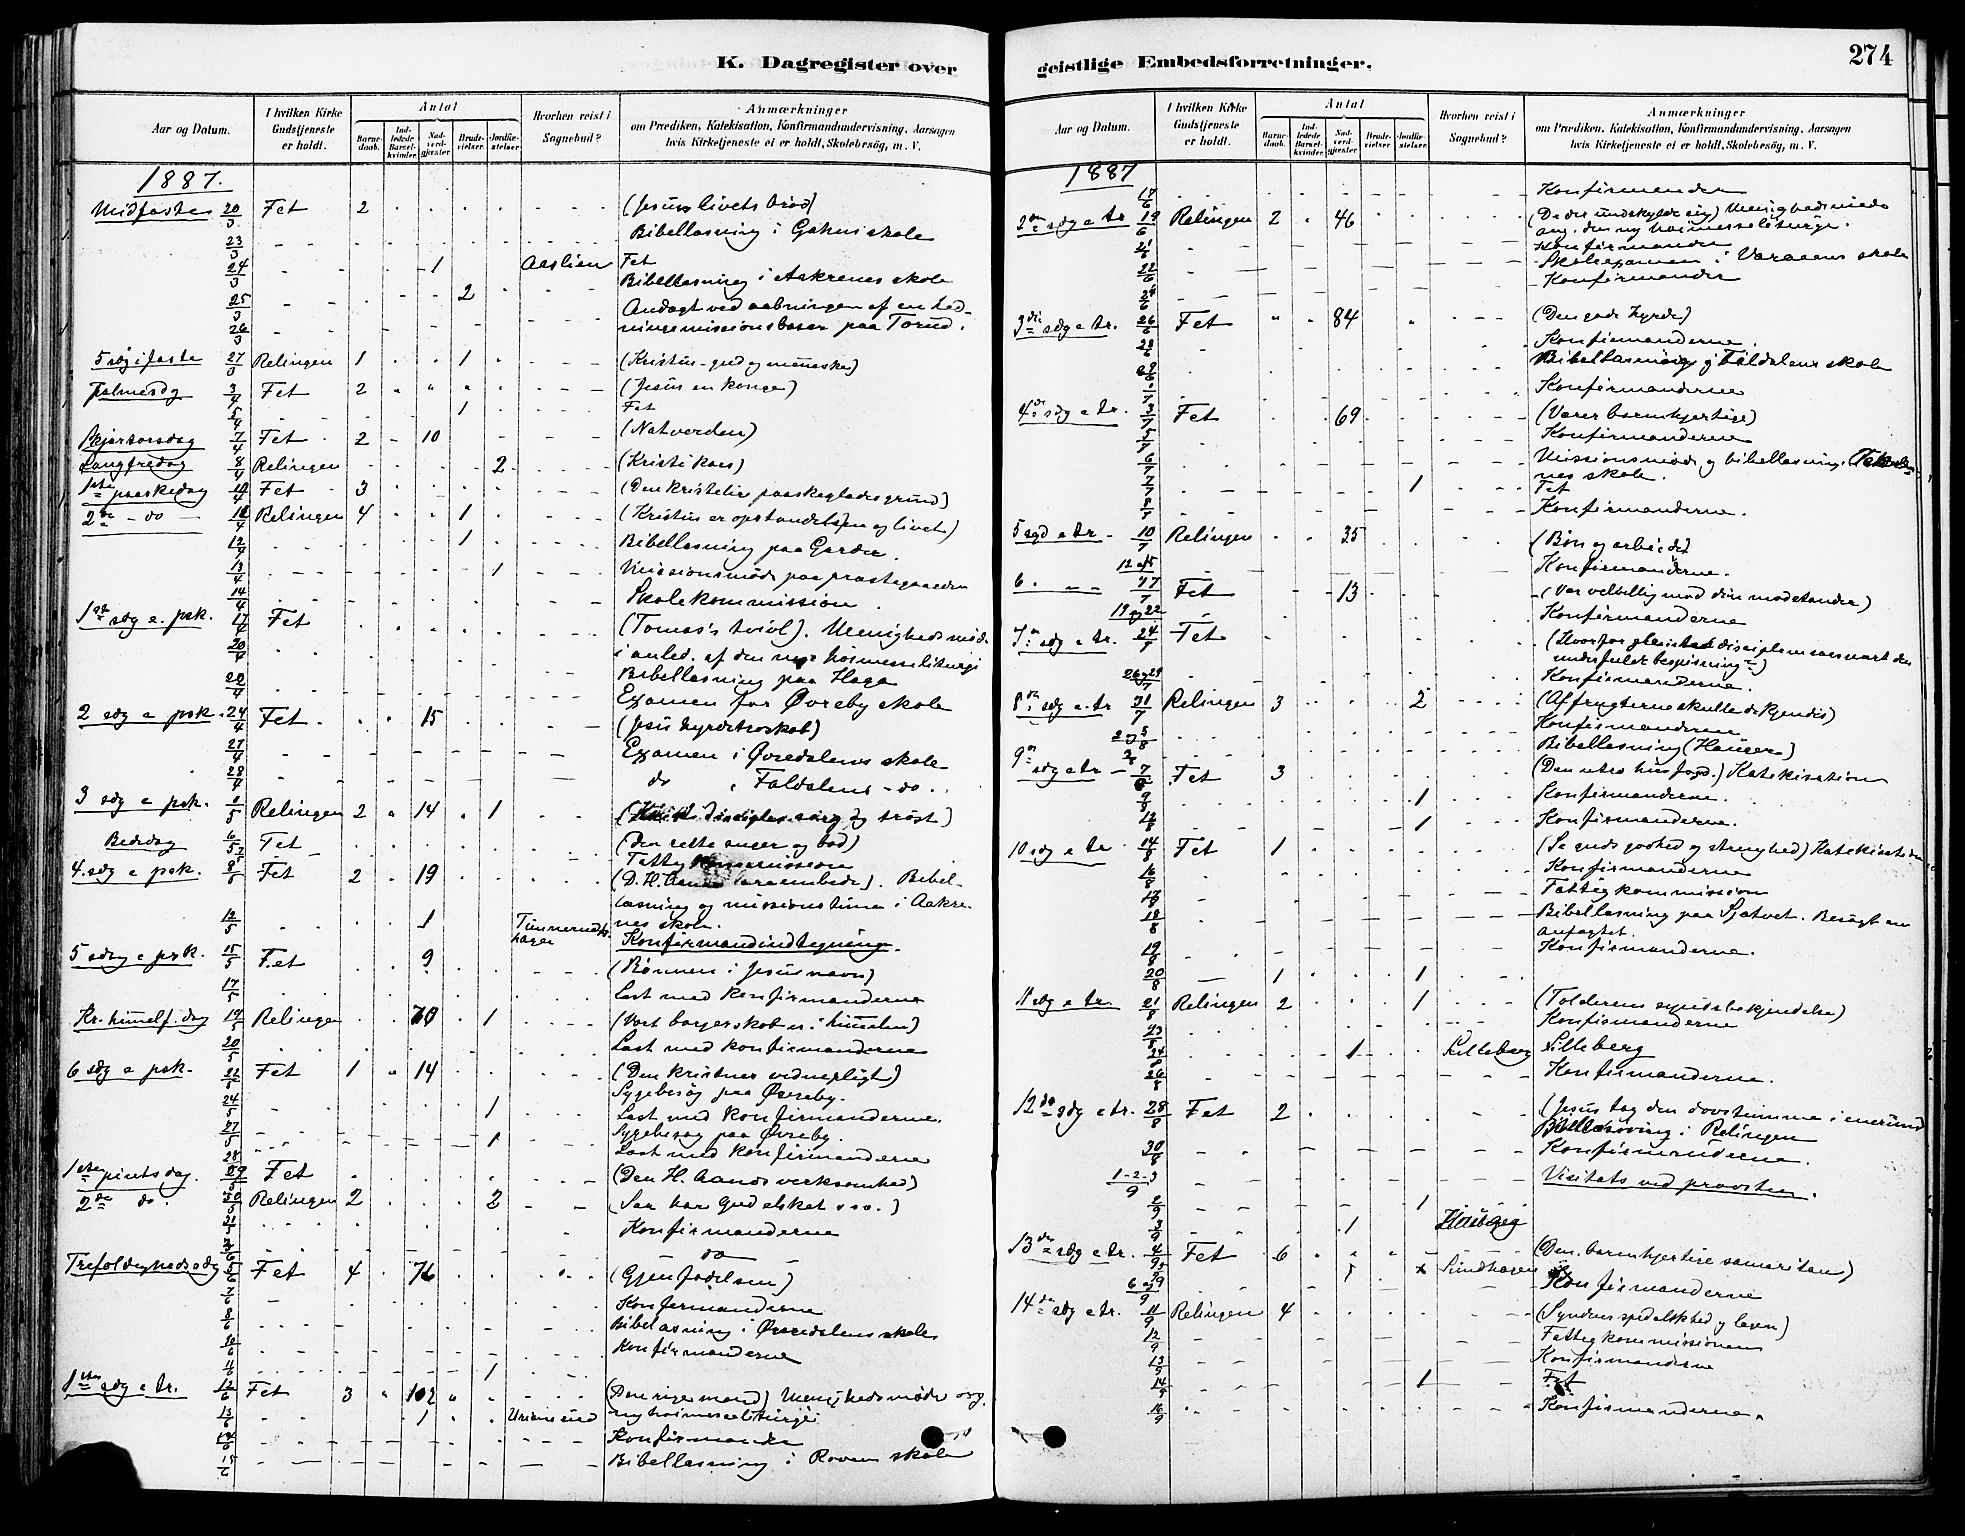 K. Dagregister over
Aar og Datum.
I hvilken Kirke Gudstjeneste er holdt.
Antal
Barne-daab.
Ind-ledede Barsel-kvinder.
Nad-verd-gjæster.
Brude-vielser.
Jordfæ-stelser.
Hvorhen reist i Sognebud?
Anmærkninger
om Prædiken, Katekisation, Konfirmandundervisning, Aarsagen
hvis Kirketjeneste ei er holdt, Skolebesög, m. V.
1887.
Midfaste 20/3 Fet 2 (Jesus livets brød)
23/3 Bibellæsning i skole
24/3 1 Aaslien Fet
Bibellæsning i Aakrenes skole
25/3 2
26/3 Andagt ved aabningen af en hed-
ningemissionsbasar paa Torud.
5 sdg i faste 27/3 Relingen 1 1 (Kristus - gud og menneske)
Palmesdg 3/4 Fet 2 (Jesus en konge)
5/4 1 Fet
Skjærtorsdag 7/4 Fet 2 10 (Natverden)
Langfredag 8/4 Relingen 2 (Kristi kors)
1ste paaskedag 10/4 Fet 3 (Den kristelige paaskeglædes grund)
2den do 11/4 Relingen 4 1 (Kristus er opstandelsen og livet)
12/4 1 Bibellæsning paa Garder.
13/4 1 Missionsmøde paa præstegaarden
14/4 Skolekommission
1ste sdg e. psk. 17/4 Fet (Tomas's tvivl). Menighedsmøde
20/4 i anled. af den nye høimesseliturgi
Bibellæsning paa Haga
22/4 Examen for Øvreby skole
2 sdg e psk. 24/4 Fet 15 (Jesu hyrdetroskab)
27/4 Examen i Øvredalens skole
28/4 do i Faldalens do.
3 sdg e psk. 1/5 Relingen 2 14 1 disciples sorg og trøst)
Bededag 6/5 Fet (Den rette anger og bod)
Fattigkommission
4. sdg e psk. 8/5 Fet 2 19 (D. H. Aands embede). Bibel-
læsning og missionstime i Aakre-
12/5 1 nes skole.
Konfirmandindtegning.
5 sdg e psk. 15/5 Fet 9 (Bønnen i Jesu navn)
17/5 Læst med konfirmanderne
Kr. himmelf. dag 19/5 Relingen 70 1 (Vort borgerskab er i himmelen)
20/5 Læst med konfirmanderne
6 sdg e psk. 22/5 Fet 1 14 (Den kristnes vidnepligt)
Sygebesøg paa Øvreby.
24/5 1 Læst med konfirmanderne.
27/5 1 Sygebesøg paa Øvreby.
28/5 Læst med konfirmanderne
1ste pintsdag. 29/5 Fet (Den H. Aands virksomhed)
2den do. 30/5 Relingen 2 2 (Saa har Gud elsket o.s.v.)
31/5 Konfirmanderne
3/6 do
Trefoldighedssdg 5/6 Fet 4 76 (Gjenfødelsen)
7/6 Konfirmanderne
8/6 Bibellæsning i Øvredalens skole
10/6 Konfirmanderne
11/6 1
1ste sdg e tr. 12/6 Fet 3 102 (Den rige mand) Menighedsmøde ang.
13/6 1 ny høimesseliturgi.
14/6 Konfirmander
15/6 Bibellæsning i Roven skole
geistlige Embedsforretninger.
274
Aar og Datum.
I hvilken Kirke Gudstjeneste er holdt.
Antal
Barne-daab.
Ind-ledede Barsel-kvinder.
Nad-verd-gjæster.
Brude-vielser.
Jordfæ-stelser.
Hvorhen reist i Sognebud?
Anmærkninger
om Prædiken, Katekisation, Konfirmandundervisning, Aarsagen
hvis Kirketjeneste ei er holdt, Skolebesög, m. V.
1887
17/6 Konfirmander
2den sdg e tr 19/6 Relingen 2 46 (De der undskylde sig) Menighedsmøde
ang. den ny høimesseliturgi.
21/6 Konfirmander
22/6 Skoleexamen i Varaaens skole
24/6 Konfirmander
3die sdg e tr. 26/6 Fet 84 (Den gode hyrde)
28/6 Konfirmanderne.
29/6 Bibellæsning i Faldalens skole
1/7 Konfirmanderne
4de sdg e tr. 3/7 Fet 69 (Værer barmhjertige)
5/7 Konfirmanderne
6/7 Missionsmøde og bibellæsning.
nes skole.
7/7 1 Fet
8/7 Konfirmanderne.
5 sgd e tr. 10/7 Relingen 35 (Bøn og arbeide)
12 15 Konfirmanderne.
6. 17/7 Fet 13 (Vær velvillig mod din modstander)
19 og 22 Konfirmanderne
7de sdg e tr. 24/7 Fet (Hvorfor disciplene saa snart den
underfulde bespisning?)
26 og 29/7 Konfirmanderne.
8de sdg e. tr 31/7 Relingen 3 2 (Af frugterne skulle de kjendes)
2 og 5/8 Konfirmanderne
Bibellæsning (Hauger)
9de sdg e tr 7/8 Fet 3 (Den utro husfogd.) Katekisation
9/8 1 Konfirmanderne.
12/8 1 Konfirmanderne.
10 sdg e tr. 14/8 Fet 1 (Se guds godhed og strenghed) Katekisation
16/8 Konfirmanderne
17/8 Fattigkommission
18/8 Bibellæsning paa Sjatvet. Besøgt en
anfægtet.
19/8 Konfirmanderne.
20/8 1 1
11 sdg e tr. 21/8 Relingen 2 1 (Tolderens syndsbekjendelse)
23/8 Konfirmanderne
24/8 1 Lilleberg Lilleberg
26/8 Konfirmanderne.
12de sdg e tr. 28/8 Fet 2 (Jesus tog den døvstumme i enerum)
Bibellæsning i Relingen
30/8 Konfirmanderne.
1-2-3/9 Visitats ved provsten.
2/9 1
3/9 1
13de sdg e tr. 4/9 Fet 6 (Den barmhjertige samaritan)
5/9 Sundhagen
6 og 9/9 Konfirmanderne
14de sdg e tr. 11/9 Relingen 4 (Syndens spedalskhed og lægen)
12/9 Fattigkommissionen
13/9 Konfirmanderne
14/9 1 Fet
16/9 Konfirmanderne.